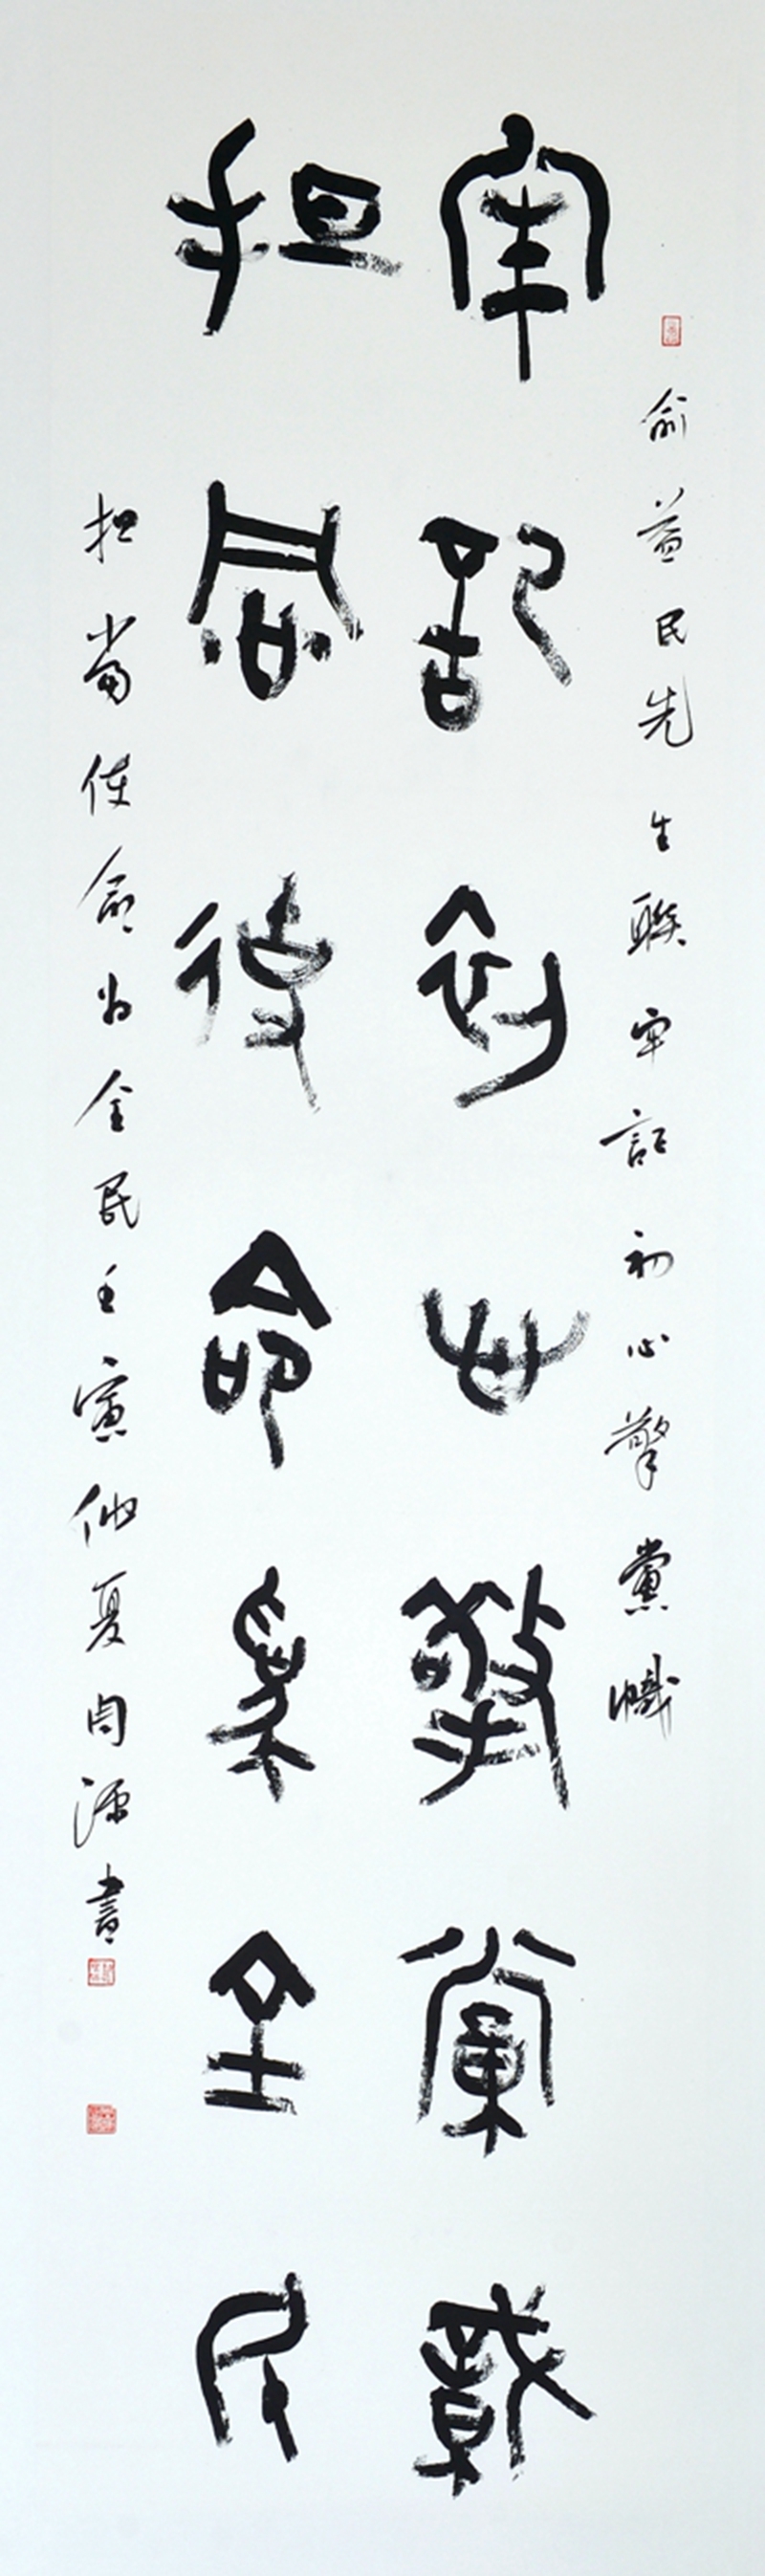 俞益民先生聯牢記初心擎黨幟
牢記初心擎黨幟
担當使命為全民
担當使命為全民壬寅仲夏自源書